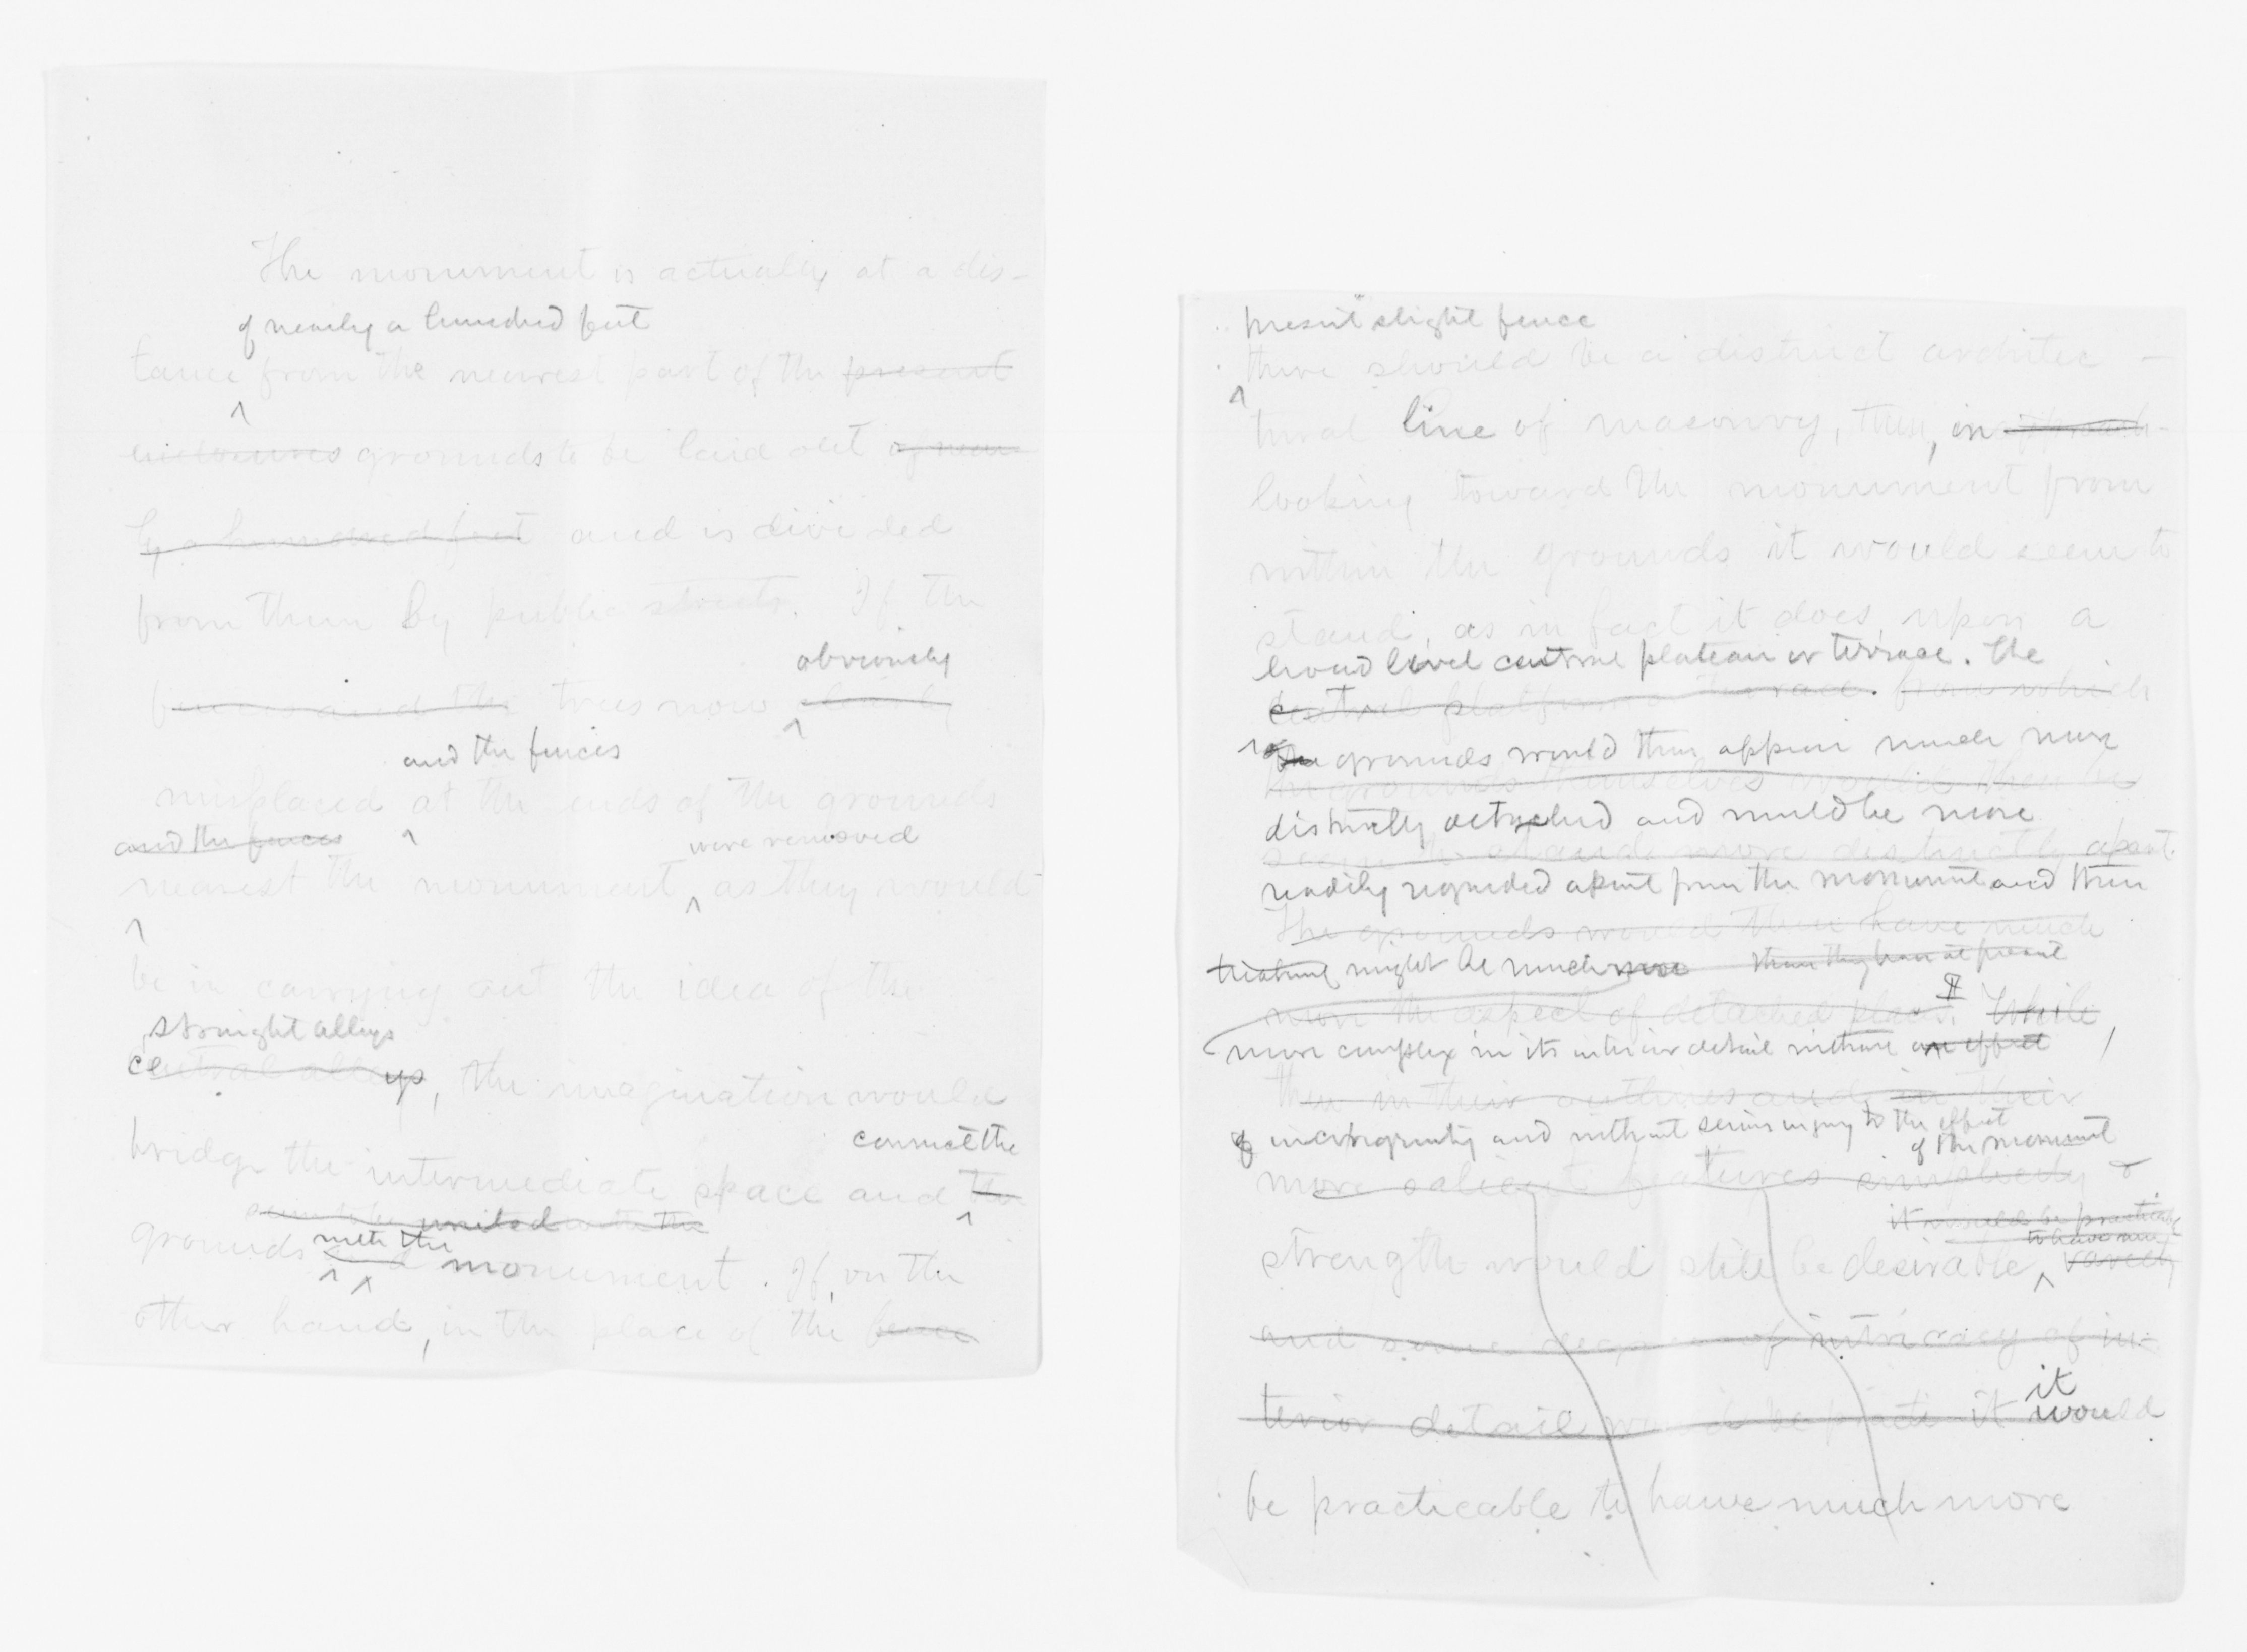 The monument is actually at a dis-
of nearly a hundred feet
tance from the nearest part of the present
enclosures grounds to be laid out of near
ly a hundred feet and is divided
from them by public streets. If the
obviously
fences and the trees now clearly
and the fences
misplaced at the ends of the grounds
and the fences were removed
nearest the monument, as they would
be in carrying out the idea of the
straight alleys
central alleys, the imagination would
bridge the intermediate space and the
connect the
seem to be united with the
grounds with the monument. If, on the
other hand, in the place of the fence
present slight fence
there should be a distinct architec-
tural line of masonry, then, in approach-
looking toward the monument from
within the grounds it would seem to
stand, as in fact it does, upon a
broad level central plateau or terrace. The
central platform or terrace. from which
The grounds would then appear much more
the grounds themselves would then be
distinctly detached and would be more
seen to stand more distinctly apart.
readily regarded apart from the monument and their
The grounds would then have much
treatment might be much more than they have at present
more the aspect of detached places. While
more complex in its interior detail without an effect
then in their outlines and in their
of incongruity and without serious injury to the effect
of the monument
more salient features simplicity &
it would be practicable
to have much
strength would still be desirable, variety
and some degree of intricacy of in-
terior detail would be practi it would
it
be practicable to have much more